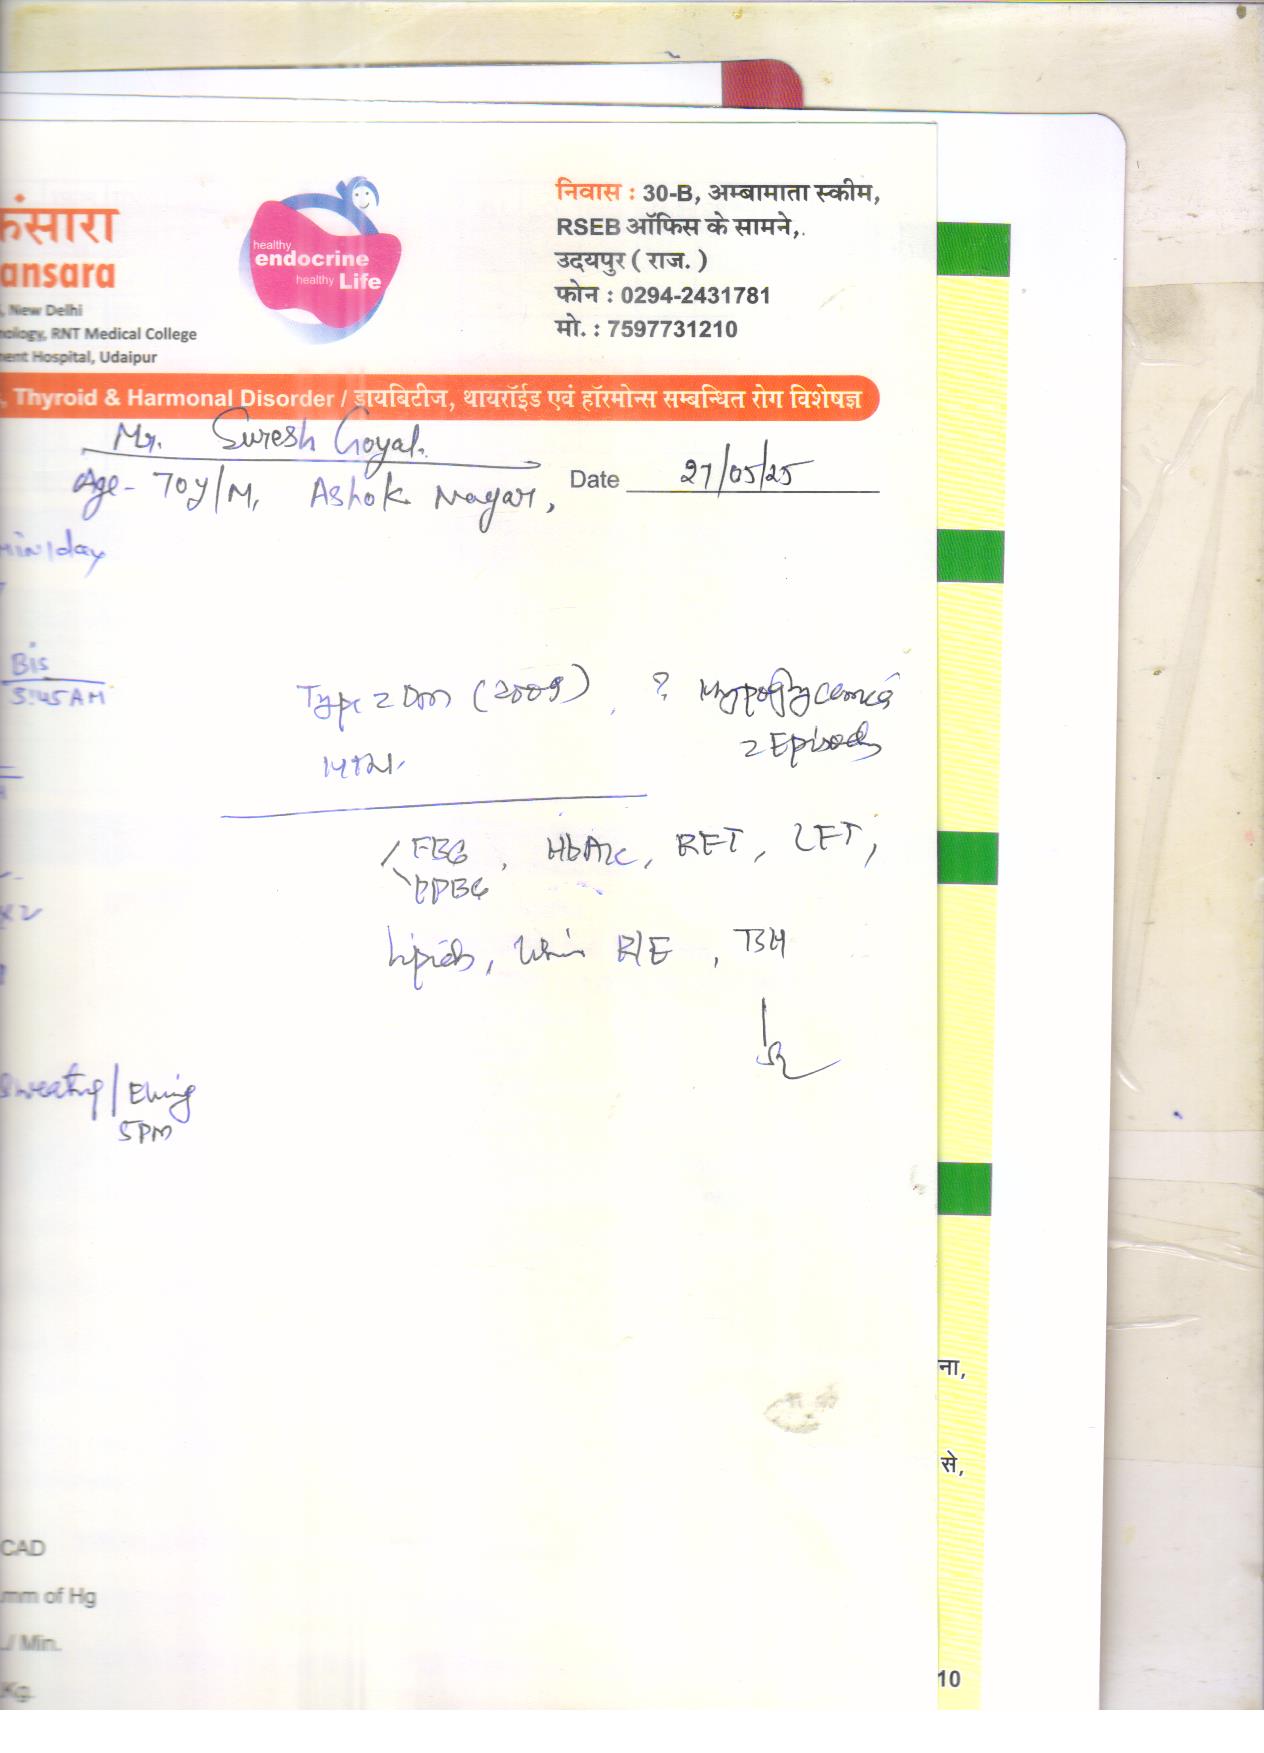 कंसारा
ansara
, New Delhi
nology, RNT Medical College
ment Hospital, Udaipur
healthy
endocrine
healthy Life
निवास : 30-B, अम्बामाता स्कीम,
RSEB ऑफिस के सामने,
उदयपुर ( राज. )
फोन : 0294-2431781
मो. : 7597731210
, Thyroid & Harmonal Disorder / डायबिटीज, थायरॉईड एवं हॉरमोन्स सम्बन्धित रोग विशेषज्ञ
Mr. Suresh Goyal.
Age- 70y/M, Ashok Nagar,
Date 27/05/25
min/day
Bis
5:45AM
Type 2 Dm (2009), ? Hypoglycemia
2 Episodes
FBG, HbA1c, RFT, LFT,
PPBG
Lipids, Urine R/E, TSH
Sweating / Evening
5PM
ना,
से,
CAD
mm of Hg
/ Min.
Kg.
10